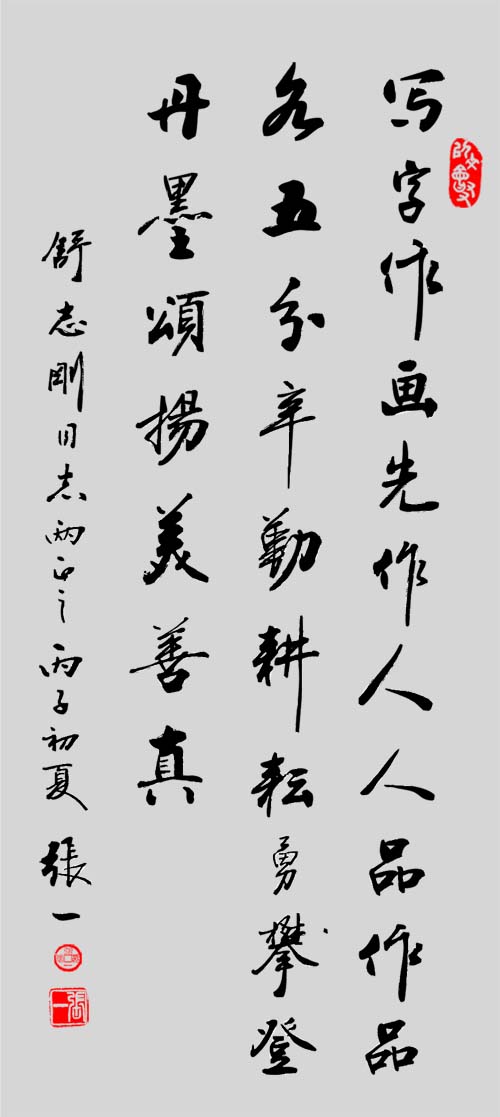 写字作画先作人人品作品
各五分辛勤耕耘勇攀登
丹墨頌揚美善真
舒志剛同志两正之 丙子初夏 張一
張一